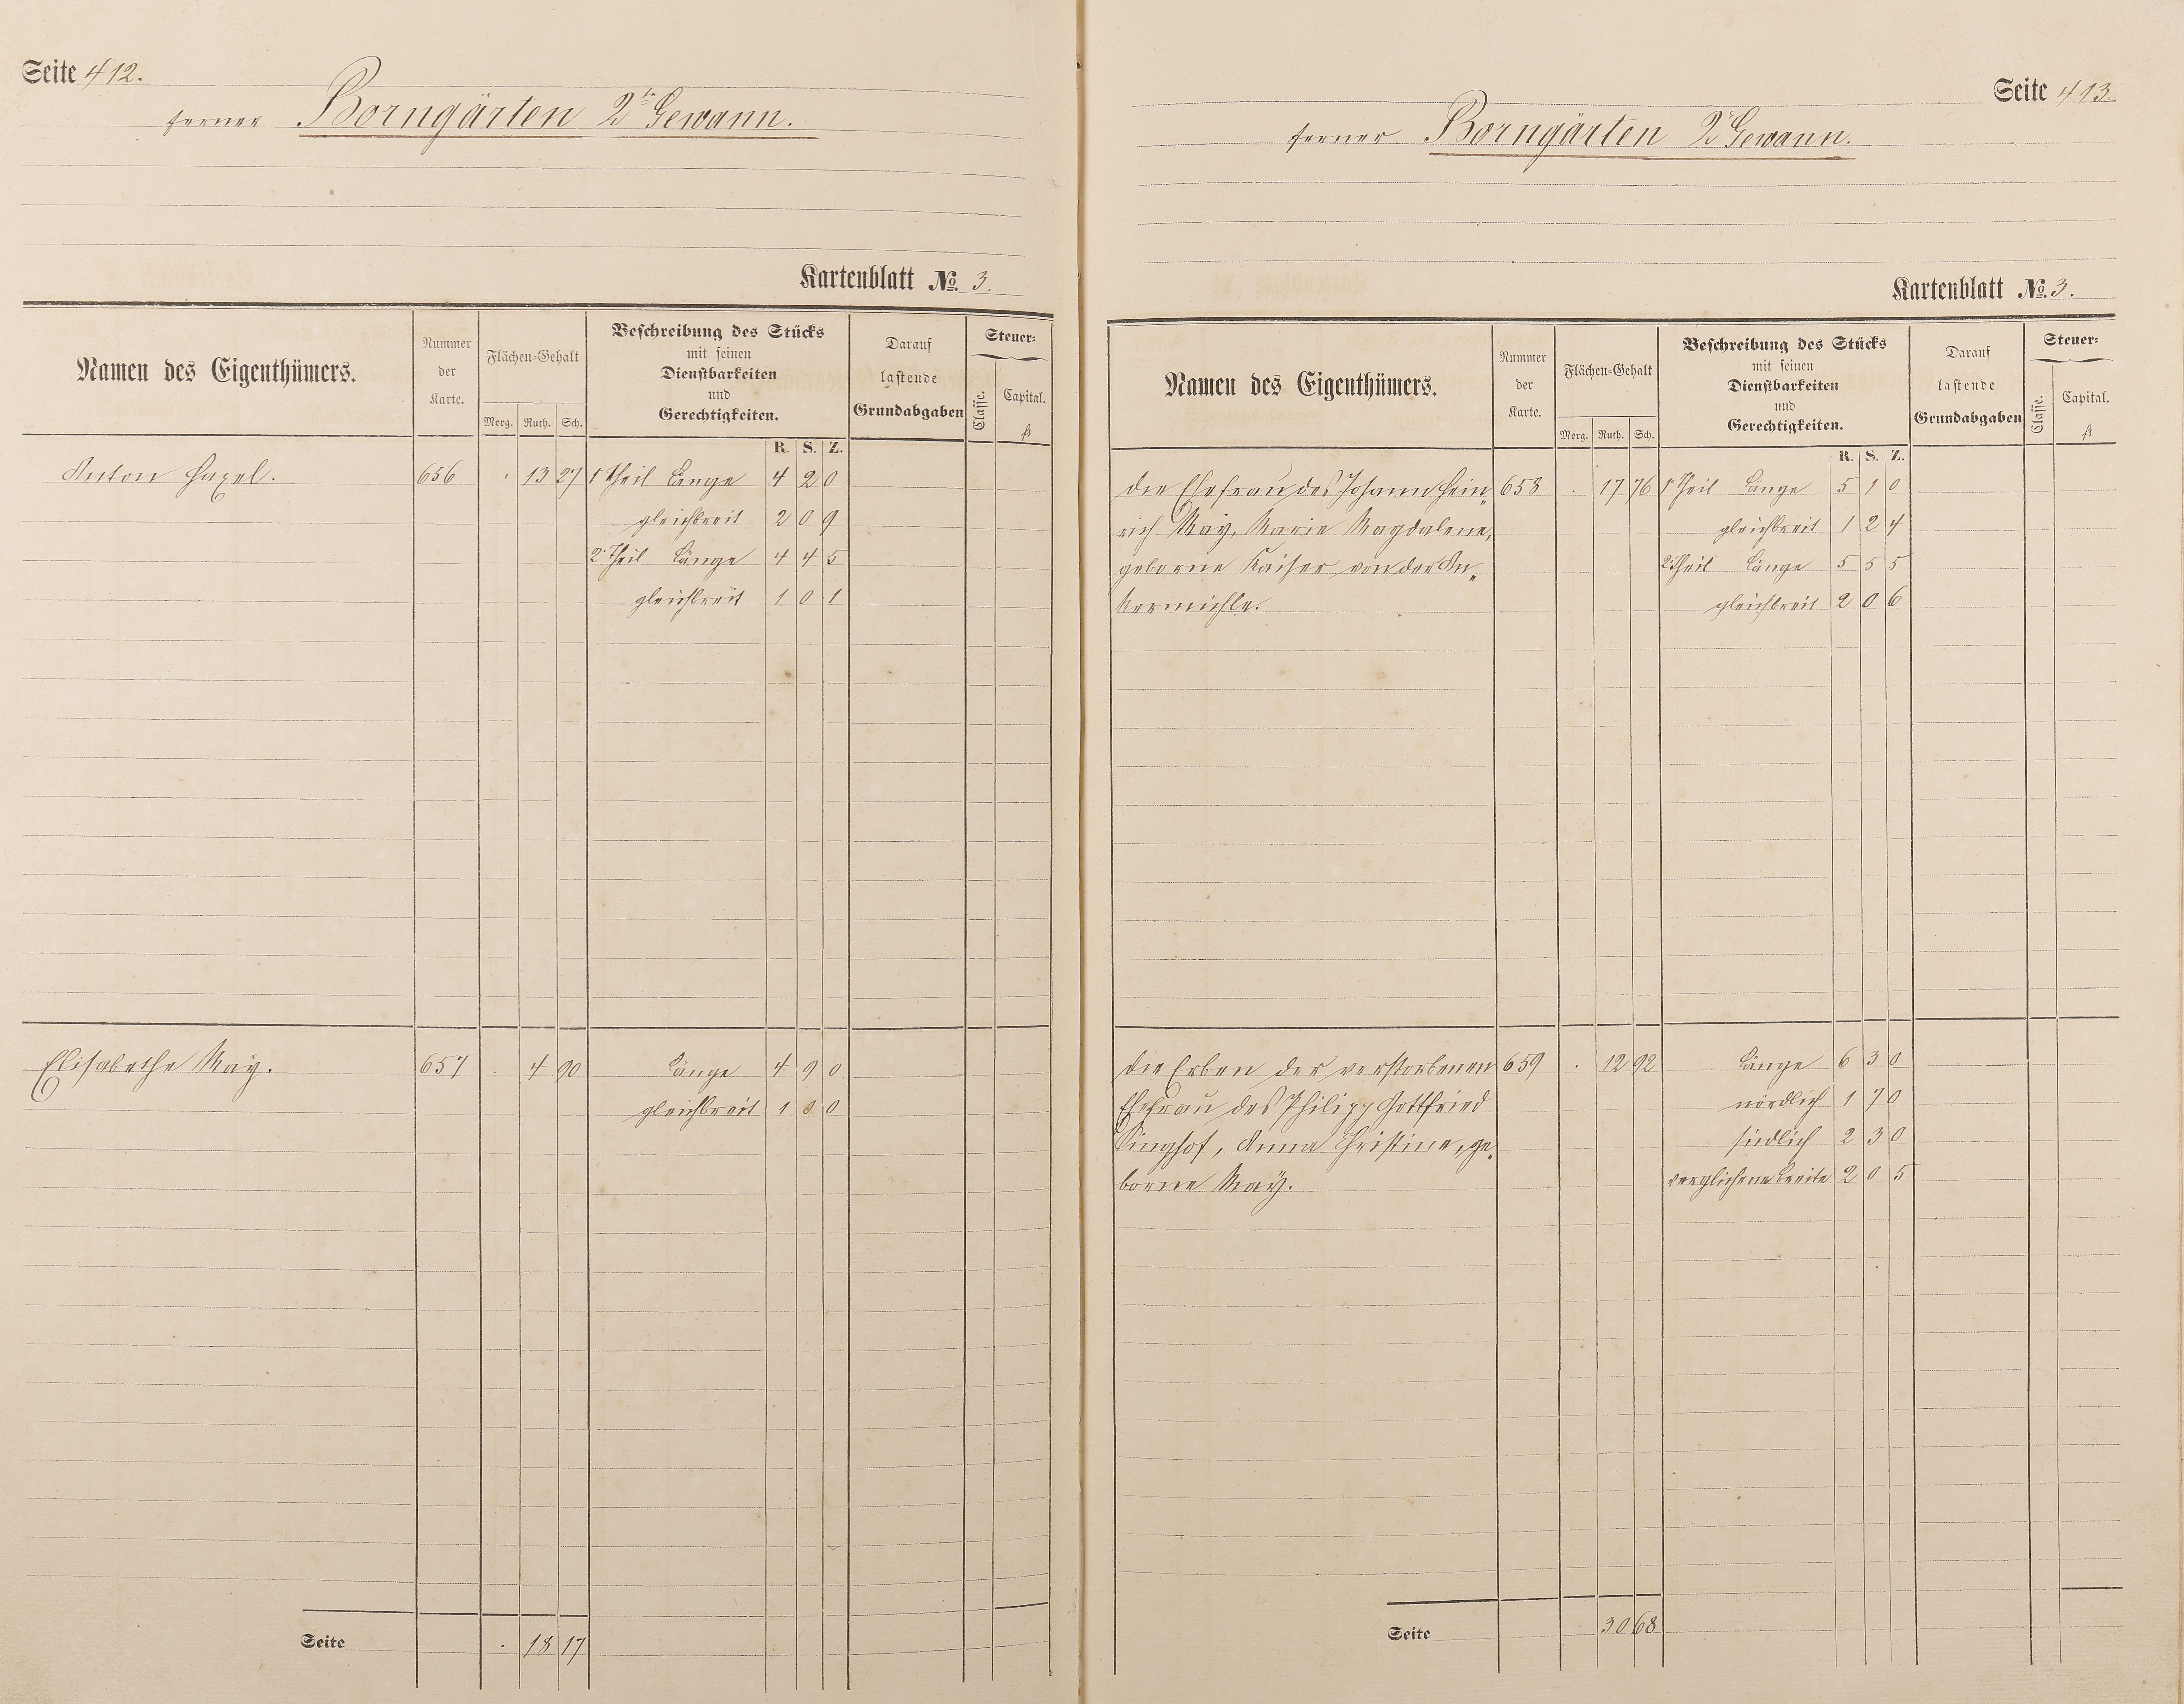 Seite 412.
ferner Borngärten 2te Gewann.
Kartenblatt No. 3.
Namen des Eigenthümers.
Nummer der Karte.
Flächen-Gehalt
Morg. Ruth. Sch.
Beschreibung des Stücks
mit seinen
Dienstbarkeiten
und
Gerechtigkeiten.
Darauf
lastende
Grundabgaben
Steuer-
Classe.
Capital.
fl
R. S. Z.
Anton Haxel. 656 . 13 27 1r Theil Länge 4 2 0
gleichbreit 2 0 9
2r Theil Länge 4 4 5
gleichbreit 1 0 1
Elisabethe May. 657 . 4 90 Länge 4 9 0
gleichbreit 1 0 0
Seite . 18 17
Seite 413.
ferner Borngärten 2e Gewann.
Kartenblatt No. 3.
Namen des Eigenthümers.
Nummer der Karte.
Flächen-Gehalt
Morg. Ruth. Sch.
Beschreibung des Stücks
mit seinen
Dienstbarkeiten
und
Gerechtigkeiten.
Darauf
lastende
Grundabgaben
Steuer-
Classe.
Capital.
fl
R. S. Z.
die Ehefrau des Johann Hein„ 658 . 17 76 1r Theil Länge 5 1 0
rich May, Marie Magdalene, gleichbreit 1 2 4
geborne Kaiser von der 2r Theil Länge 5 5 5
gleichbreit 2 0 6
die Erben der verstorbenen 659 . 12 92 Länge 6 3 0
Ehefrau des Philipp Gottfried nördlich 1 7 0
Singhof, Anna Christine, ge„ südlich 2 3 0
borne May. verglichene Breite 2 0 5
Seite 30 68